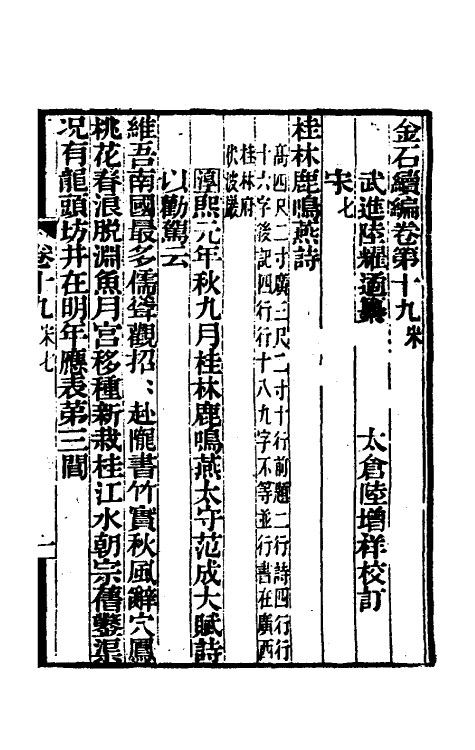 金石續編卷第十九 宋
武進陸耀遹纂 太倉陸增祥校訂
宋七
桂林鹿鳴燕詩
高四尺二寸廣三尺二寸十行前題二行詩四行行
十六字後記四行行十八九字不等並行書在廣西
桂林府
伏波巖
淳熙元年秋九月桂林鹿鳴燕太守范成大賦詩
以勸駕云
維吾南國最多儒聳觀招招赴隴書竹實秋風辭穴鳳
桃花春浪脫淵魚月宮移種新栽桂江水朝宗舊鑿渠
况有龍頭坊井在明年應表第三閭
卷十九 宋七 一